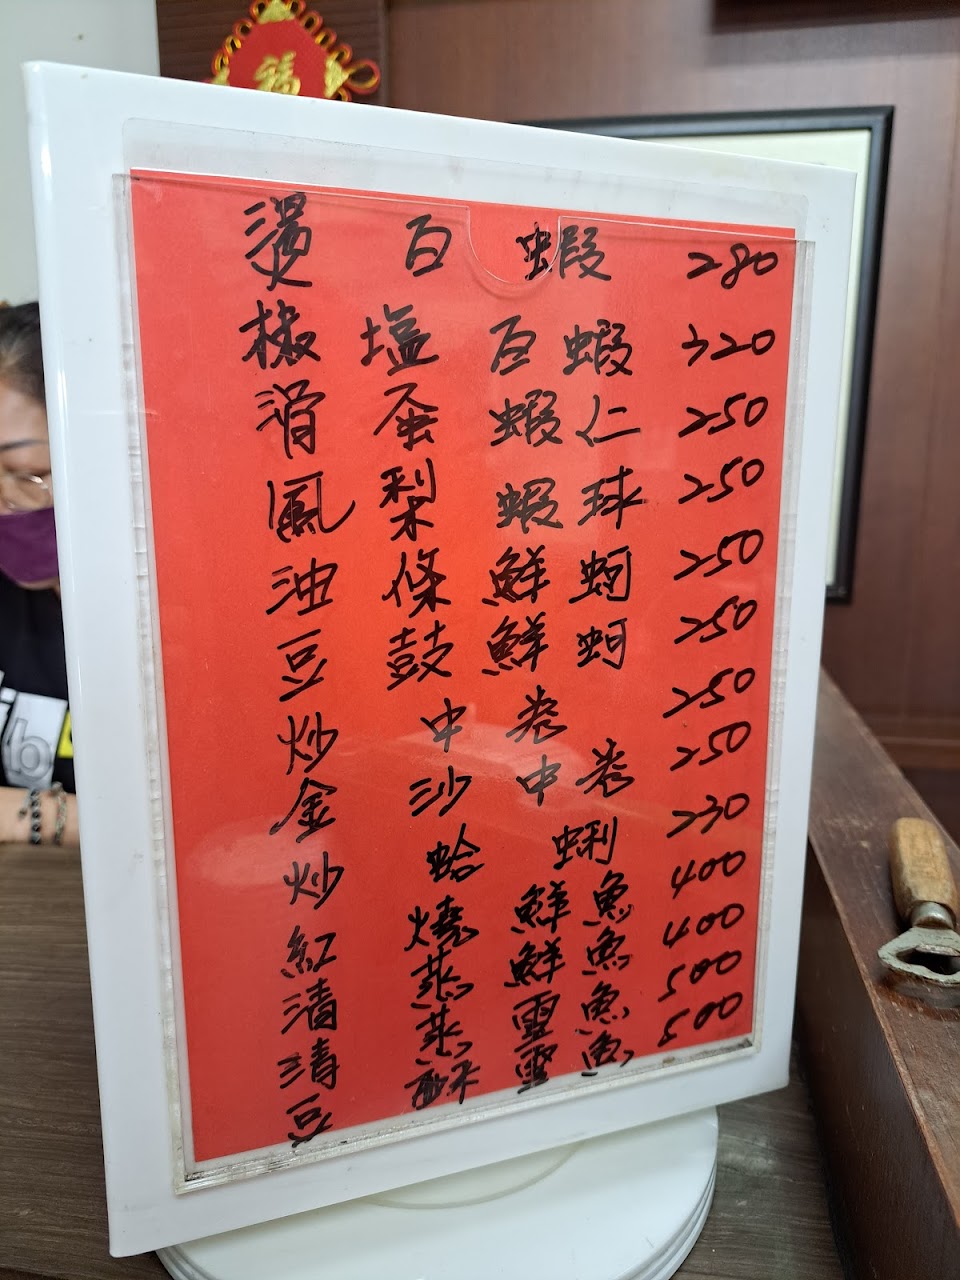 福
燙 白 蝦 280
椒 塩 白 蝦 320
滑 蛋 蝦 仁 250
鳳 梨 蝦 球 250
油 條 鮮 蚵 250
豆 鼓 鮮 蚵 250
炒 中 卷 250
金 沙 中 卷 250
炒 蛤 蜊 230
紅 燒 鮮 魚 400
清 蒸 鮮 魚 400
清 蒸 雪 魚 500
豆 酥 雪 魚 500